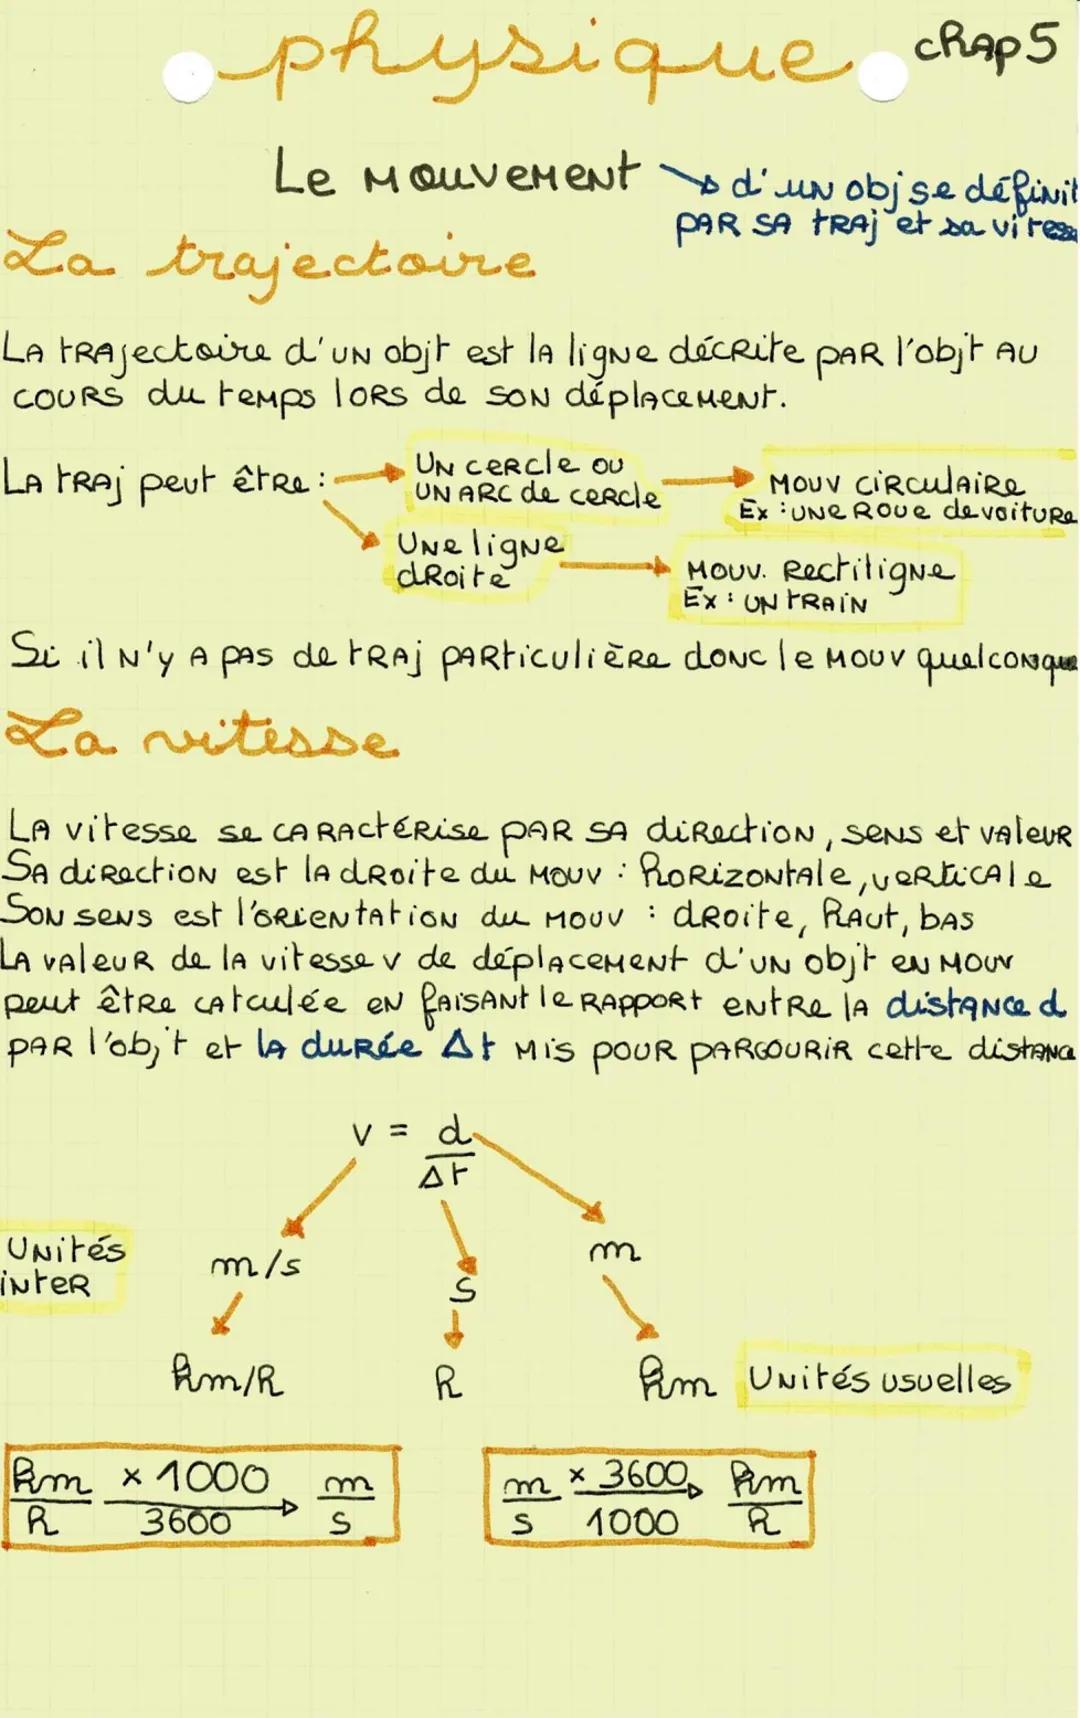 physique chap 5
Le mouvement → d'un obj se définit
par sa traj et sa vitesse
La trajectoire
La trajectoire d'un objt est la ligne décrite par l'objt au
cours du temps lors de son déplacement.
La traj peut être : → Un cercle ou
un arc de cercle → mouv circulaire
Ex : une roue de voiture
→ Une ligne
droite → mouv. Rectiligne
Ex : un train
Si il n'y a pas de traj particulière donc le mouv quelconque
La vitesse
La vitesse se caractérise par sa direction, sens et valeur
Sa direction est la droite du mouv : horizontale, verticale
Son sens est l'orientation du mouv : droite, haut, bas
La valeur de la vitesse v de déplacement d'un objt en mouv
peut être calculée en faisant le rapport entre la distance d
par l'objt et la durée Δt mis pour parcourir cette distance
v = d
Δt
Unités
inter
m/s
s
m
km/h
h
km
Unités usuelles
km/h × 1000/3600 → m/s
m/s × 3600/1000 → km/h